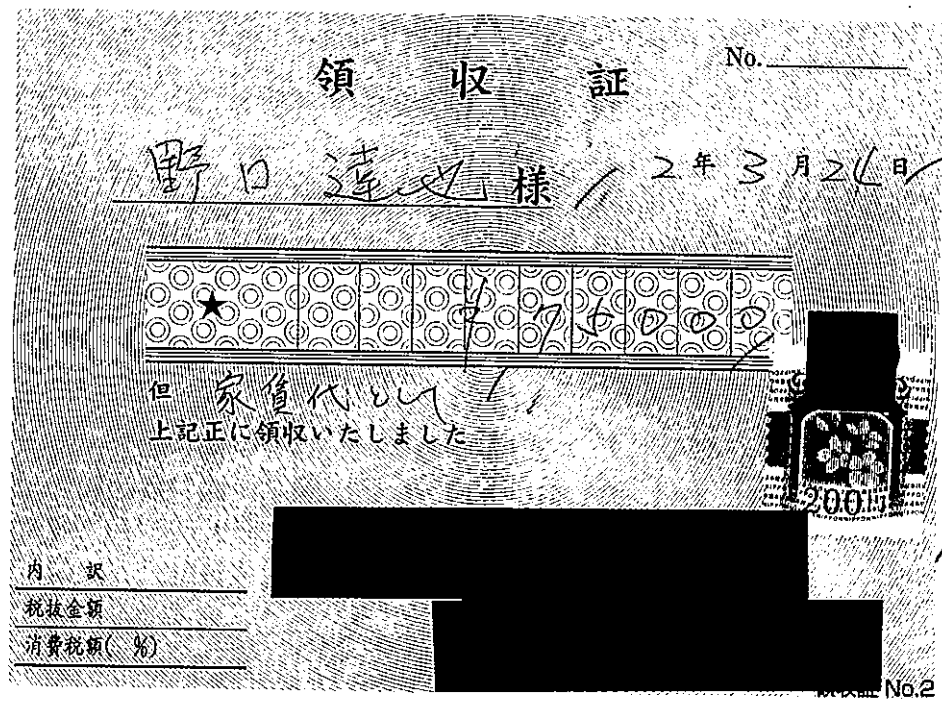 領収証
No.
野口達也 様
2年3月26日
★ ¥75000
但 家賃代として
上記正に領収いたしました
200円
内訳
税抜金額
消費税額( %)
No.2